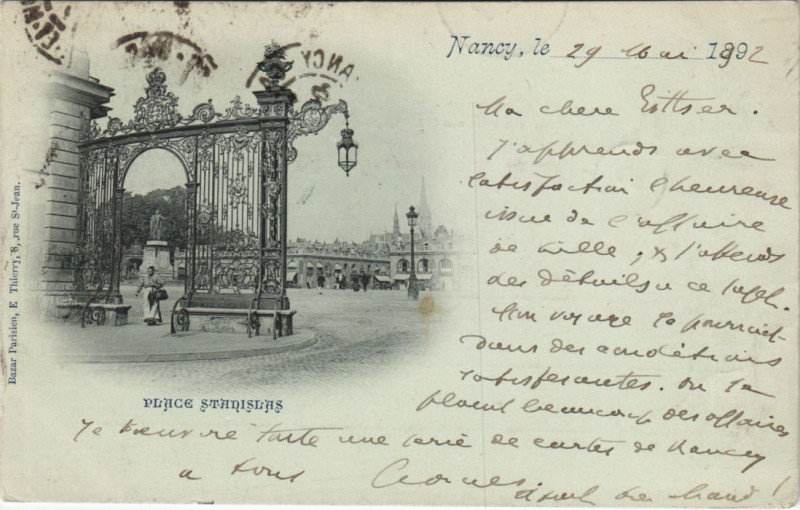 Nancy, le 29 Mai 1892
Ma chere
J'apprends avec
satisfaction l'heureuse
issue de l'affaire
de ; & j'attends
des détails a ce sujet.
Mon voyage se poursuit
dans des conditions
satisfaisantes. On se
plaint beaucoup des affaires
Je t'envoie toute une serie de cartes de Nancy
a tous
NANCY
PLACE STANISLAS
Bazar Parisien, E Thierry, 8, rue St-Jean.